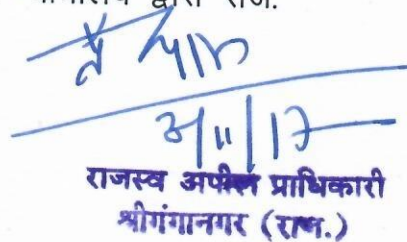 द्वारा राज.
3/11/17
राजस्व अपील प्राधिकारी
श्रीगंगानगर (राज.)